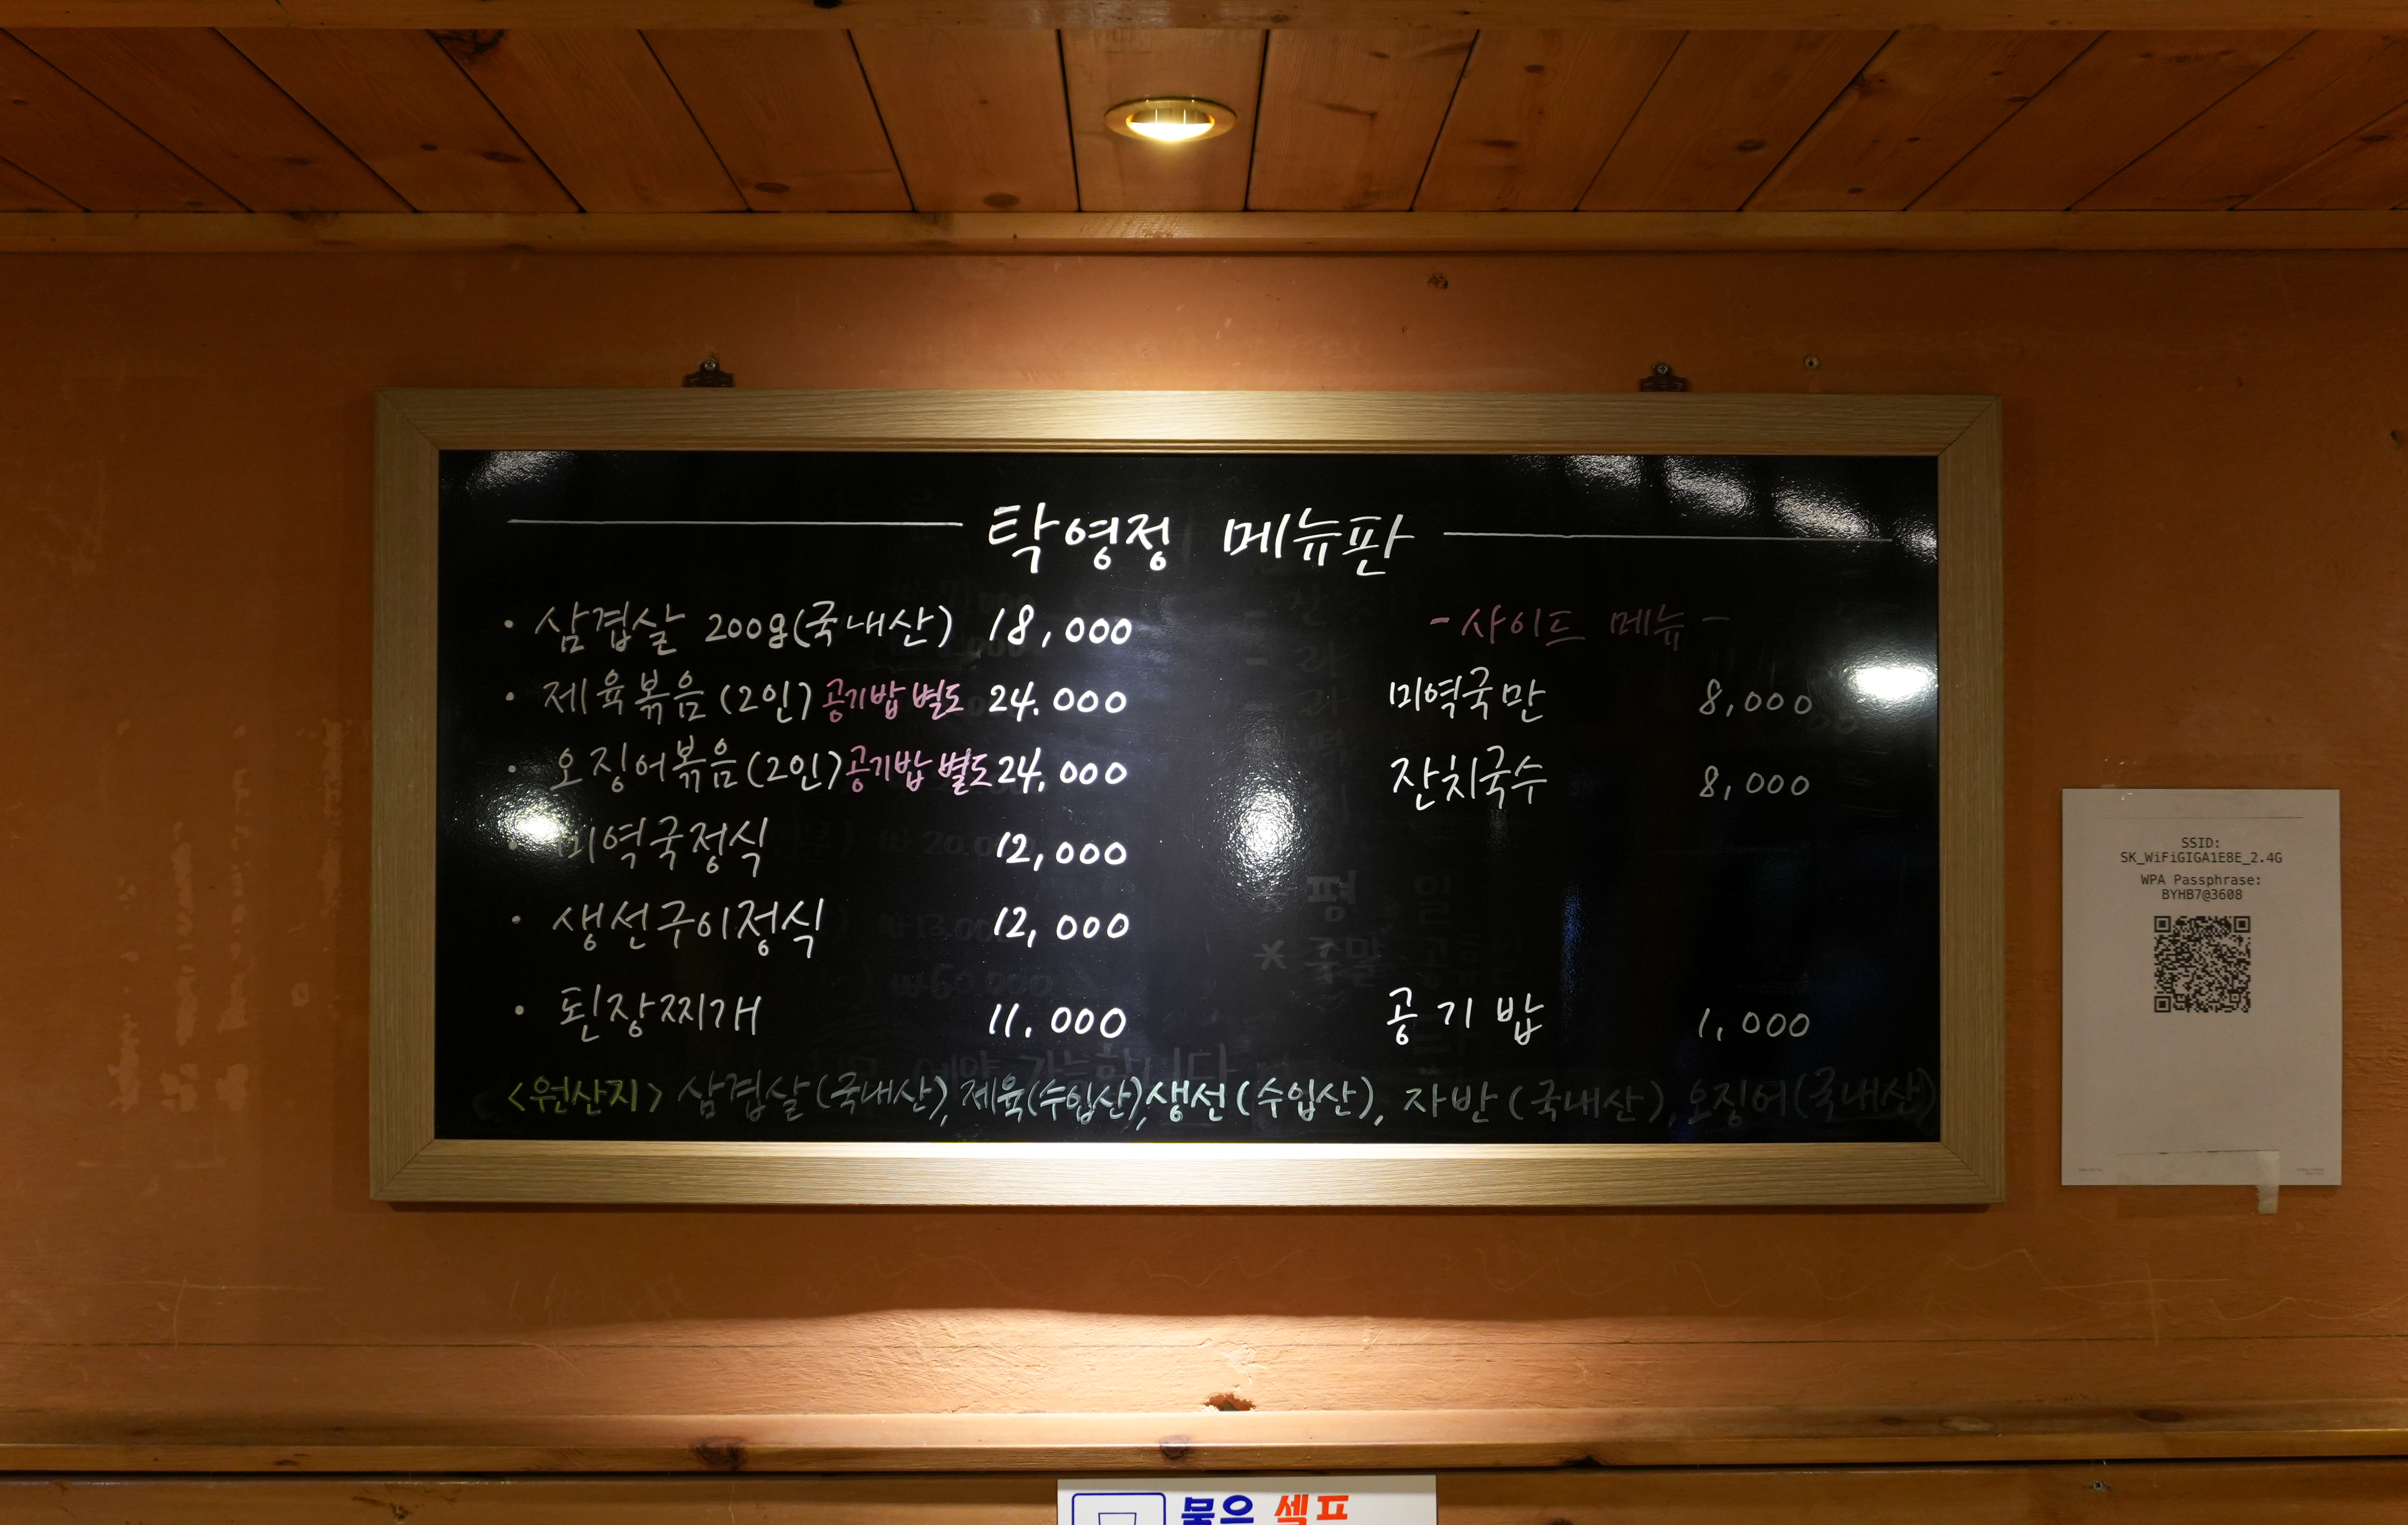 탁영정 메뉴판
· 삼겹살 200g(국내산) 18,000
· 제육볶음(2인) 공기밥 별도 24.000
· 오징어볶음(2인) 공기밥 별도 24,000
· 미역국정식 12,000
· 생선구이정식 12,000
· 된장찌개 11.000
- 사이드 메뉴 -
미역국만 8,000
잔치국수 8,000
공기밥 1,000
<원산지> 삼겹살(국내산), 제육(수입산), 생선(수입산), 자반(국내산), 오징어(국내산)
SSID:
SK_WiFiGIGA1E8E_2.4G
WPA Passphrase:
BYHB7@3608
물은 셀프